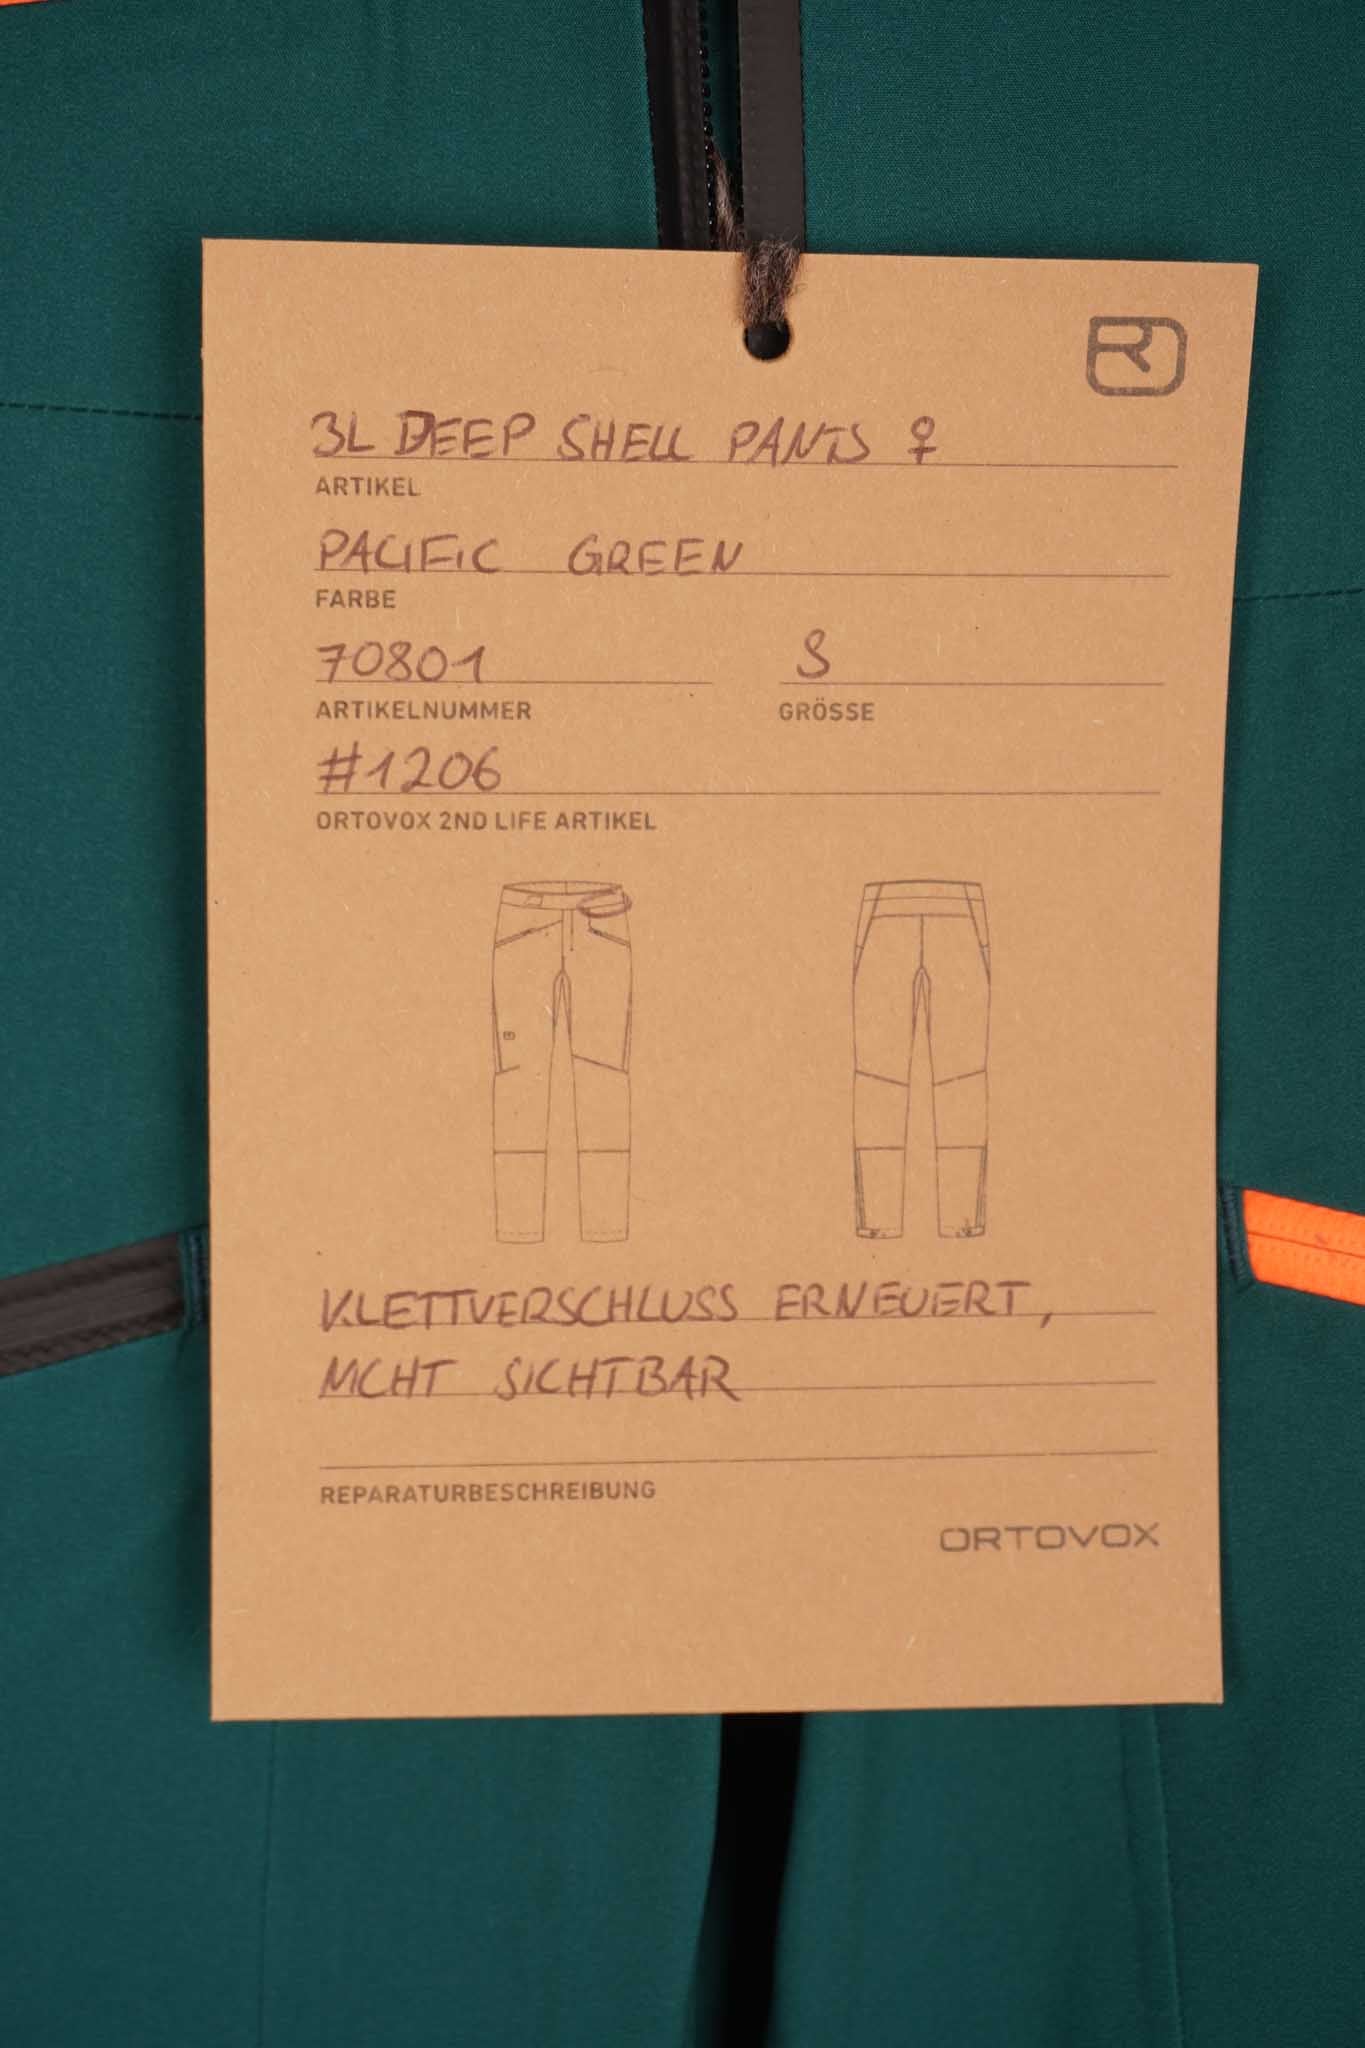 3L DEEP SHELL PANTS ♀
ARTIKEL
PACIFIC GREEN
FARBE
70801 S
ARTIKELNUMMER GRÖSSE
#1206
ORTOVOX 2ND LIFE ARTIKEL
KLETTVERSCHLUSS ERNEUERT,
NICHT SICHTBAR
REPARATURBESCHREIBUNG
ORTOVOX